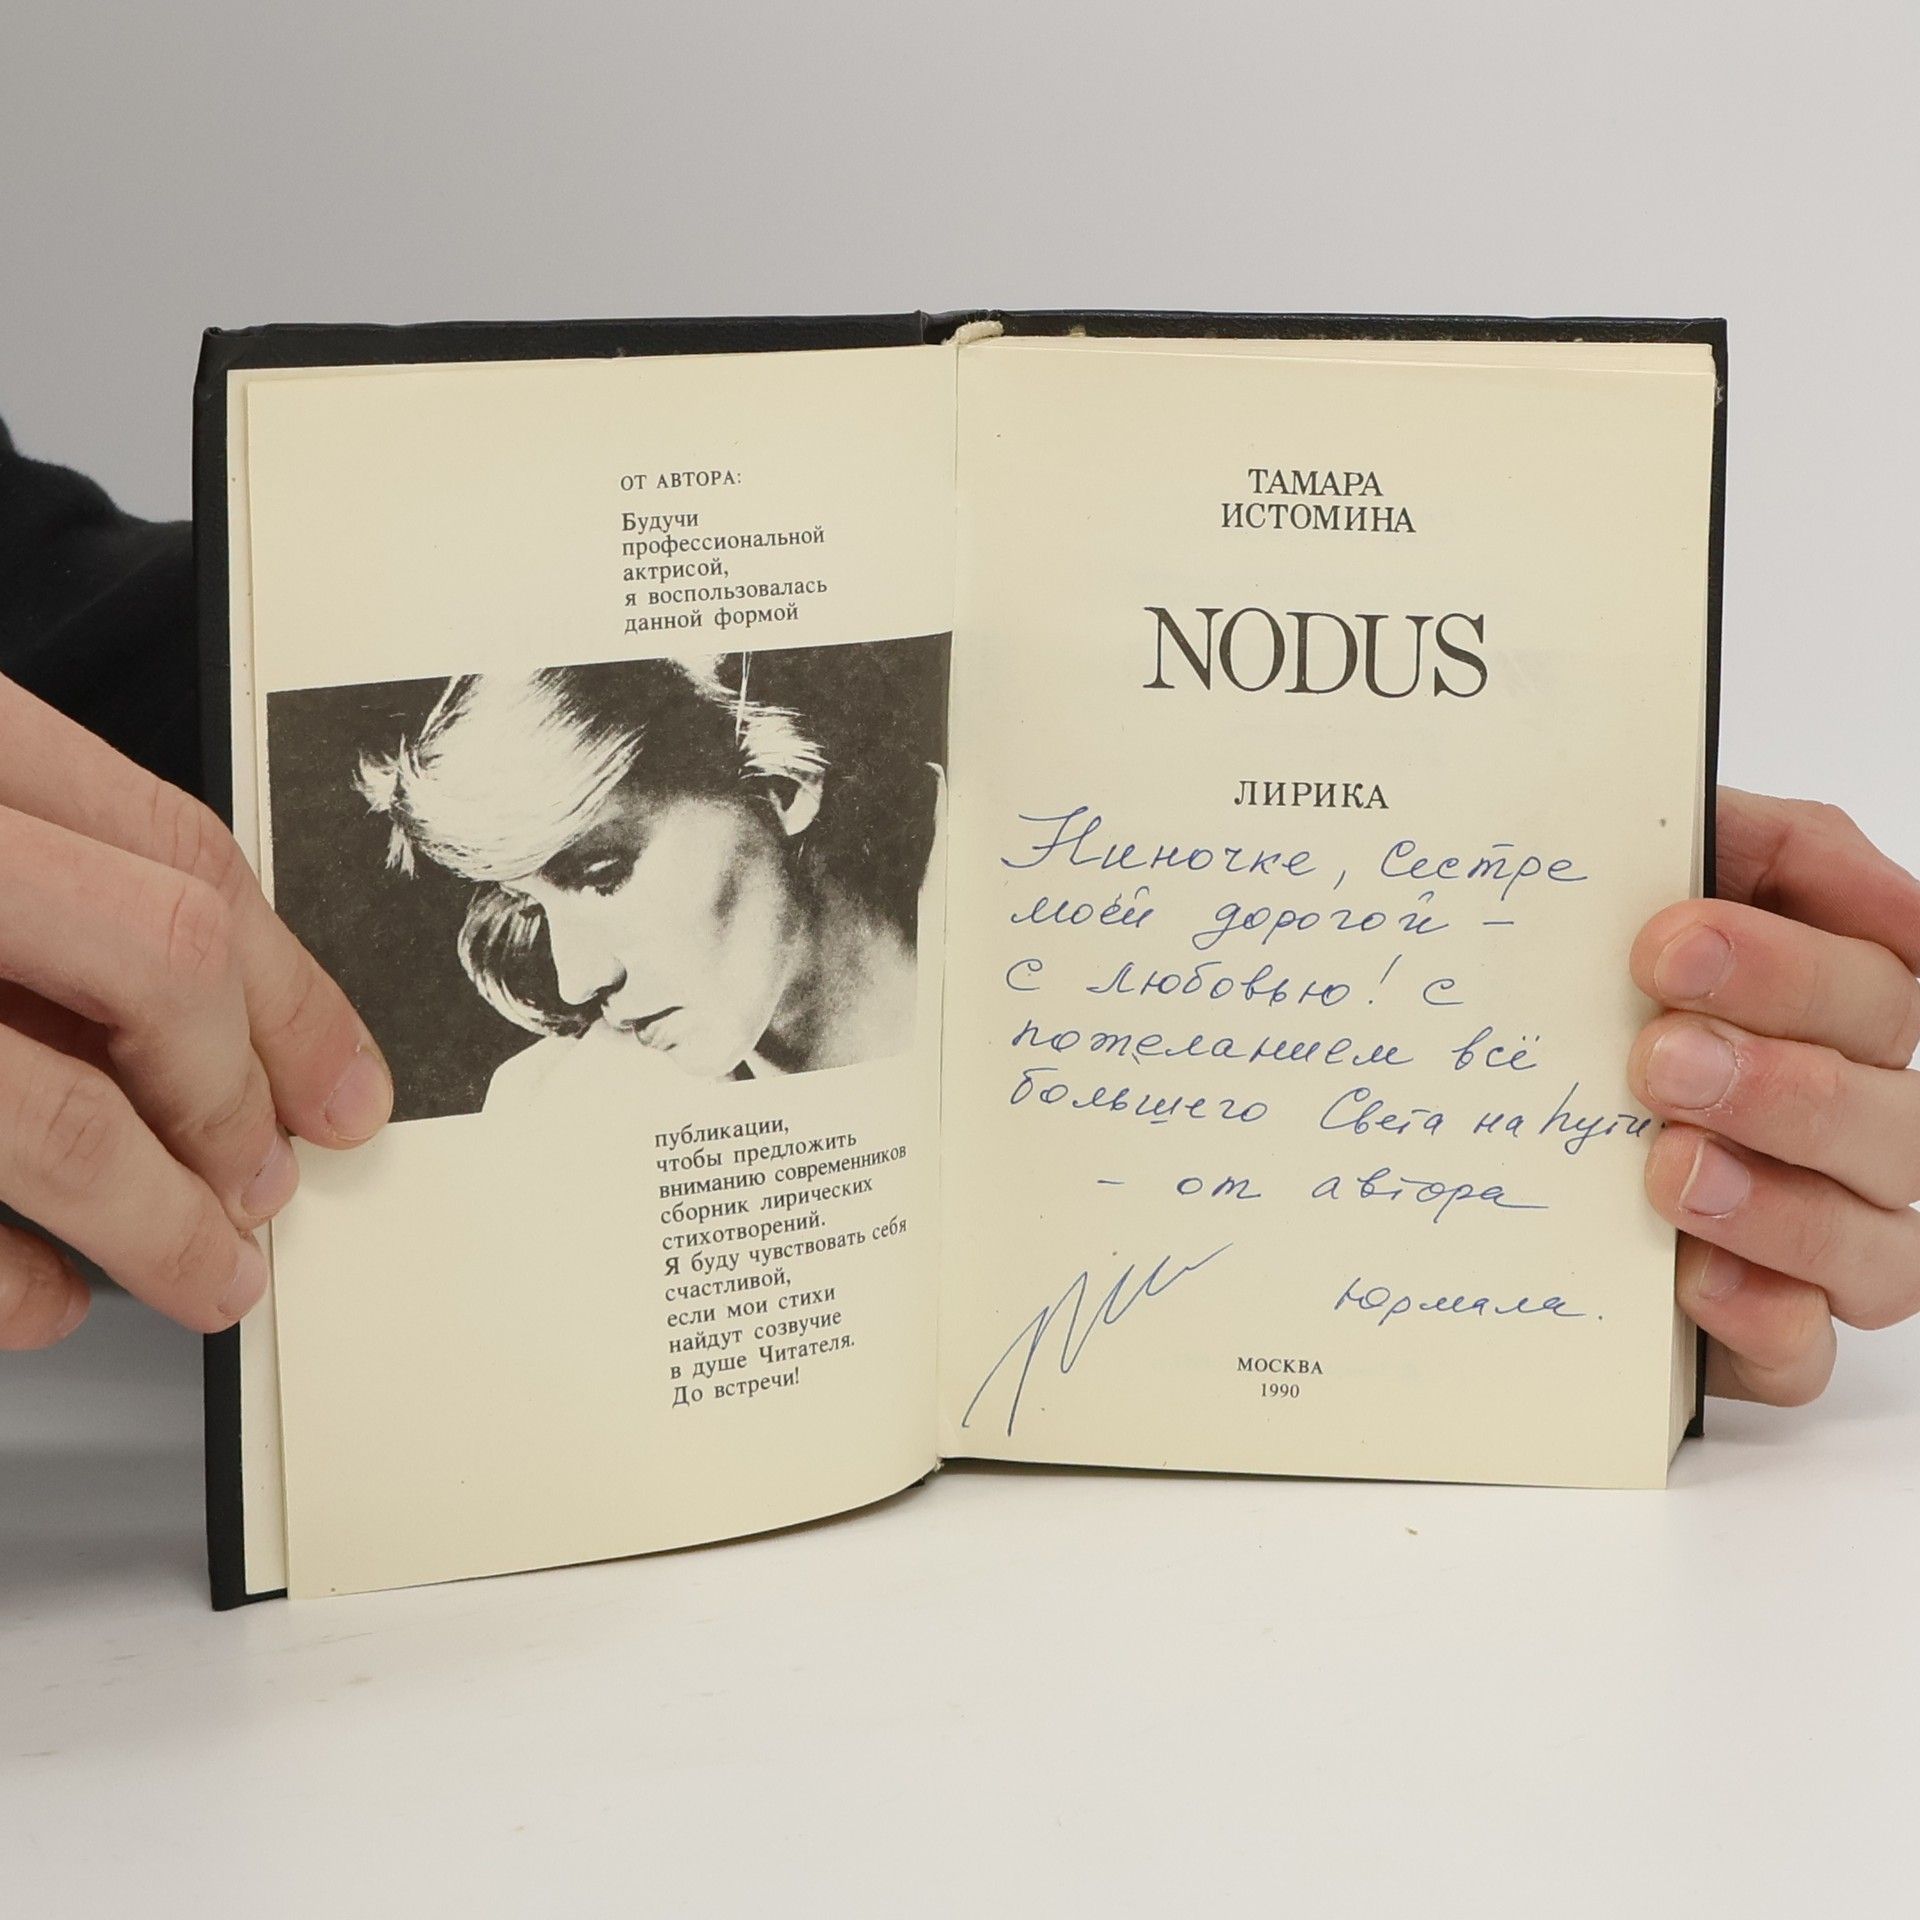 ОТ АВТОРА:
Будучи
профессиональной
актрисой,
я воспользовалась
данной формой
публикации,
чтобы предложить
вниманию современников
сборник лирических
стихотворений.
Я буду чувствовать себя
счастливой,
если мои стихи
найдут созвучие
в душе Читателя.
До встречи!
ТАМАРА
ИСТОМИНА
NODUS
ЛИРИКА
Ниночке, Сестре
моей дорогой –
с любовью! с
пожеланием всё
большего Света на Пути
– от автора
Юрмала.
МОСКВА
1990